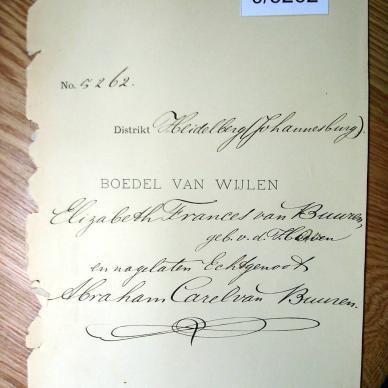 0/5262
No. 5262.
Distrikt Heidelberg (Johannesburg).
BOEDEL VAN WIJLEN
Elizabeth Frances van Buuren,
geb. v. d.
en nagelaten Echtgenoot
Abraham Carel van Buuren.